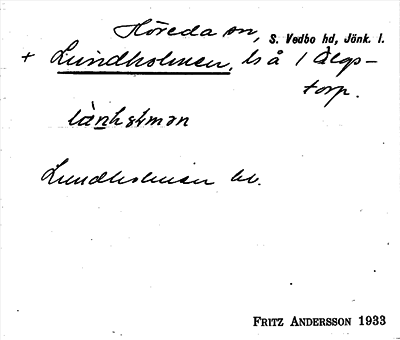 Höreda sn, S. Vedbo hd, Jönk. l.
+ Lundholmen, ls å 1 Älgs-
torp.
Lundholmen bl.
FRITZ ANDERSSON 1933